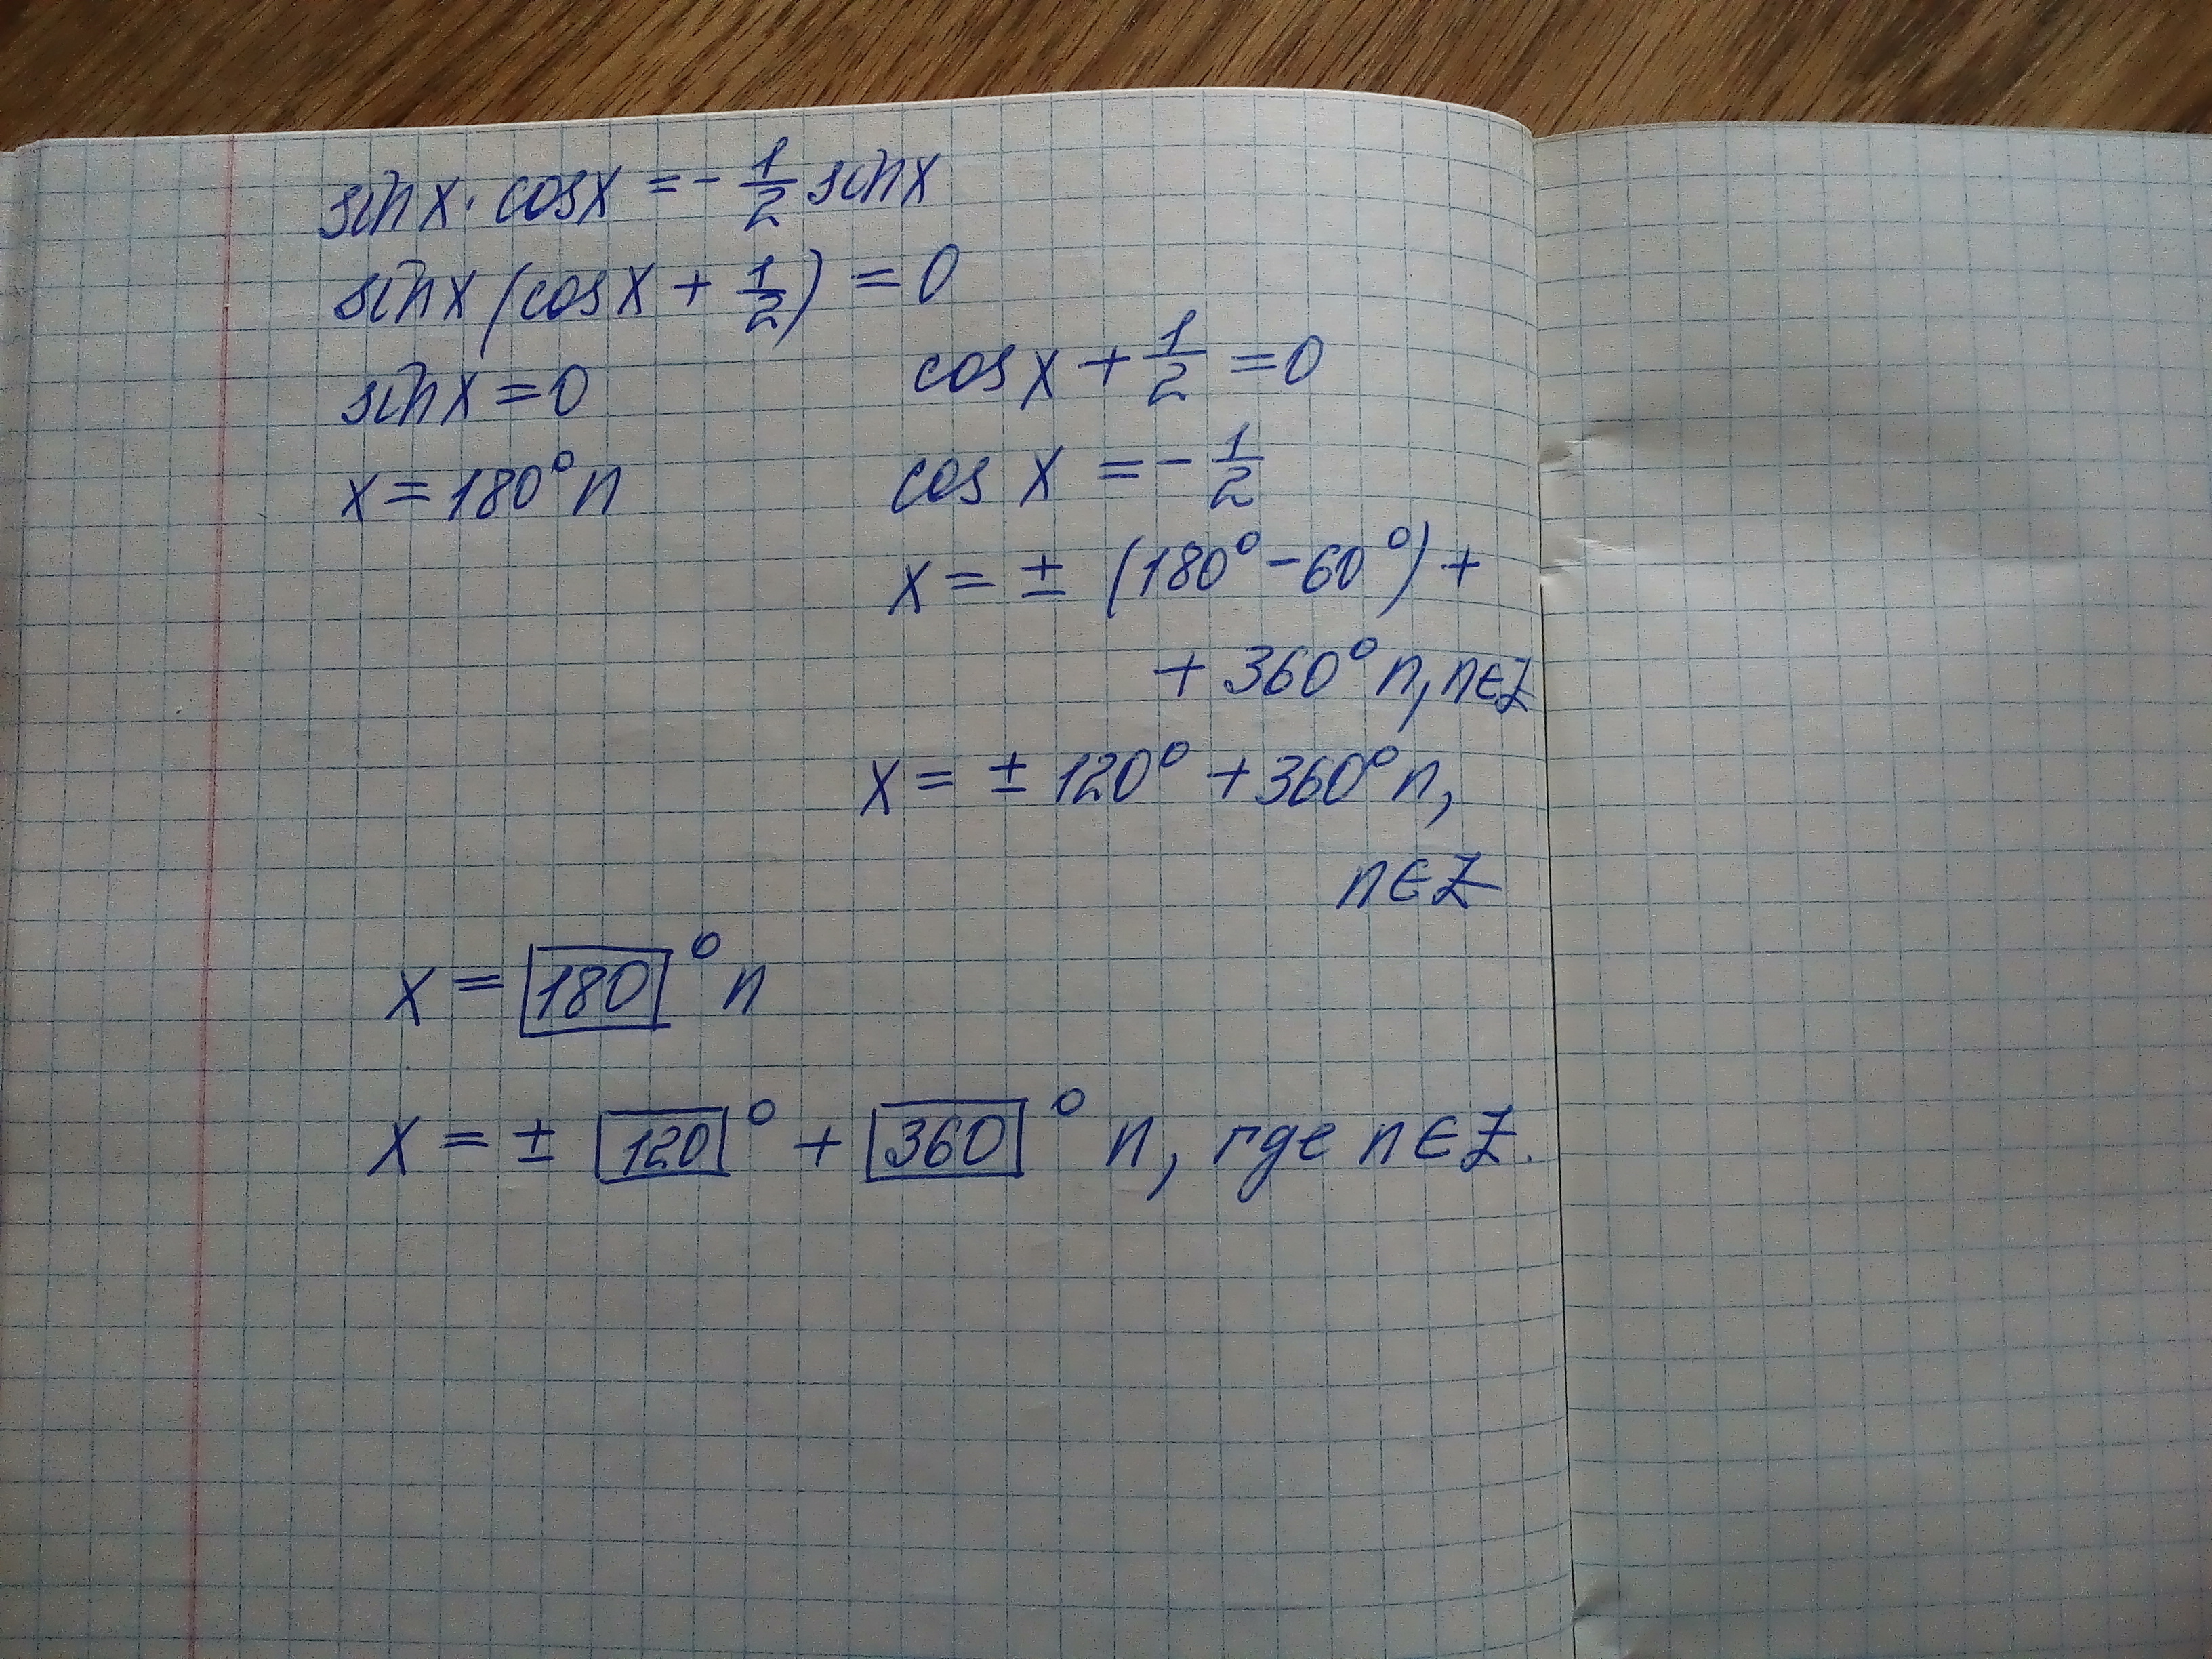 sin x · cos x = - 1/2 sin x
sin x (cos x + 1/2) = 0
sin x = 0
x = 180° n
cos x + 1/2 = 0
cos x = - 1/2
x = ± (180° - 60°) +
+ 360° n, n ∈ Z
x = ± 120° + 360° n,
n ∈ Z
x = 180 ° n
x = ± 120 ° + 360 ° n, где n ∈ Z.